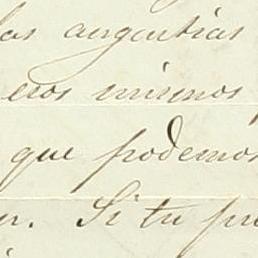 las angustias
esos mismos
que podemos
r. Si tu pu